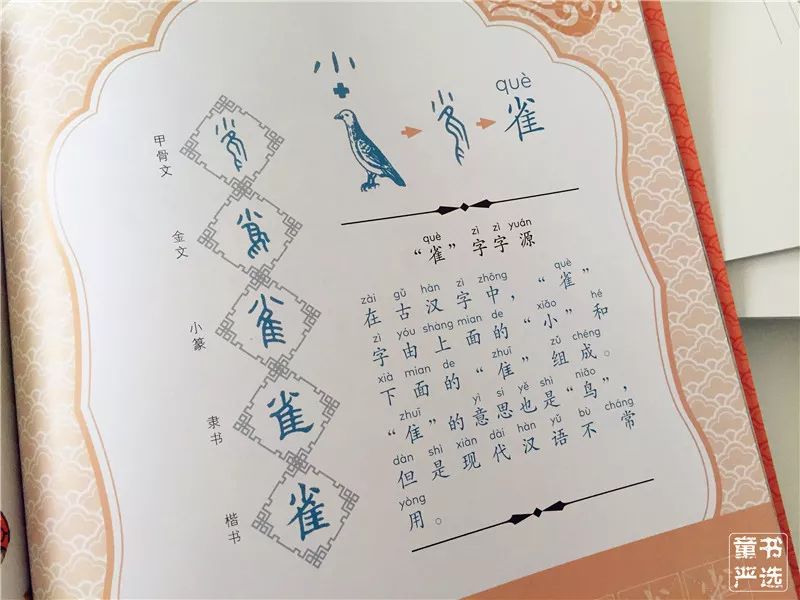 甲骨文
金文
小篆
隶书
楷书
小
què
雀
què zì zì yuán
“雀”字字源
zài gǔ hàn zì zhōng què
在古汉字中，“雀”
zì yóu shàng mian de xiǎo hé
字由上面的“小”和
xià mian de zhuī zǔ chéng
下面的“隹”组成。
zhuī yì si yě shì niǎo
“隹”的意思也是“鸟”，
dàn shì xiàn dài hàn yǔ bù cháng
但是现代汉语不常
yòng
用。
雀
雀
雀
童书
严选